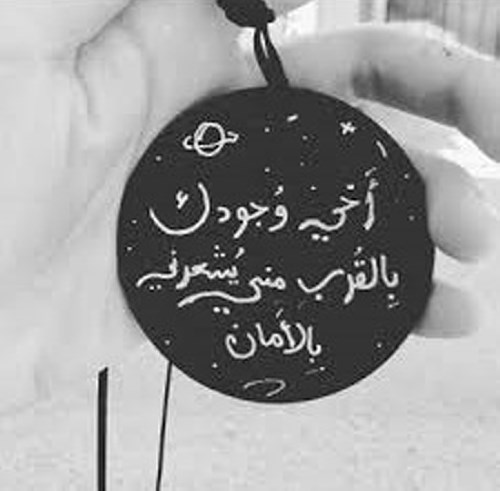 أَخي وُجودك
بِالقُرب مني يُشعرني
بِالأَمان